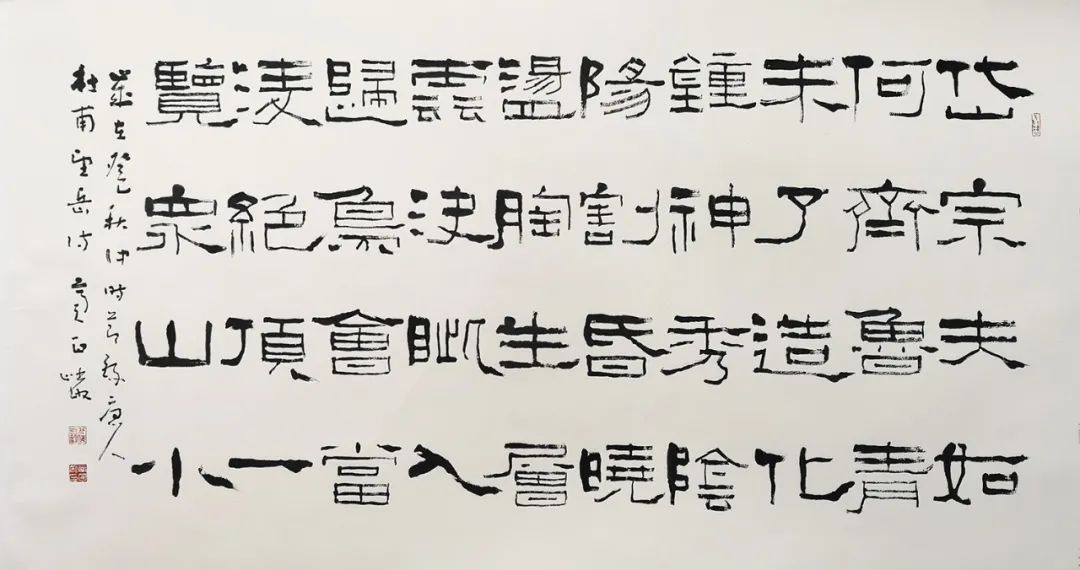 岱宗夫如
何齊魯青
未了造化
鍾神秀陰
陽割昏曉
盪胸生層
雲決眦入
歸鳥會當
淩絕頂一
覽衆山小
歲在癸巳秋仲时节錄唐人
杜甫望岳诗